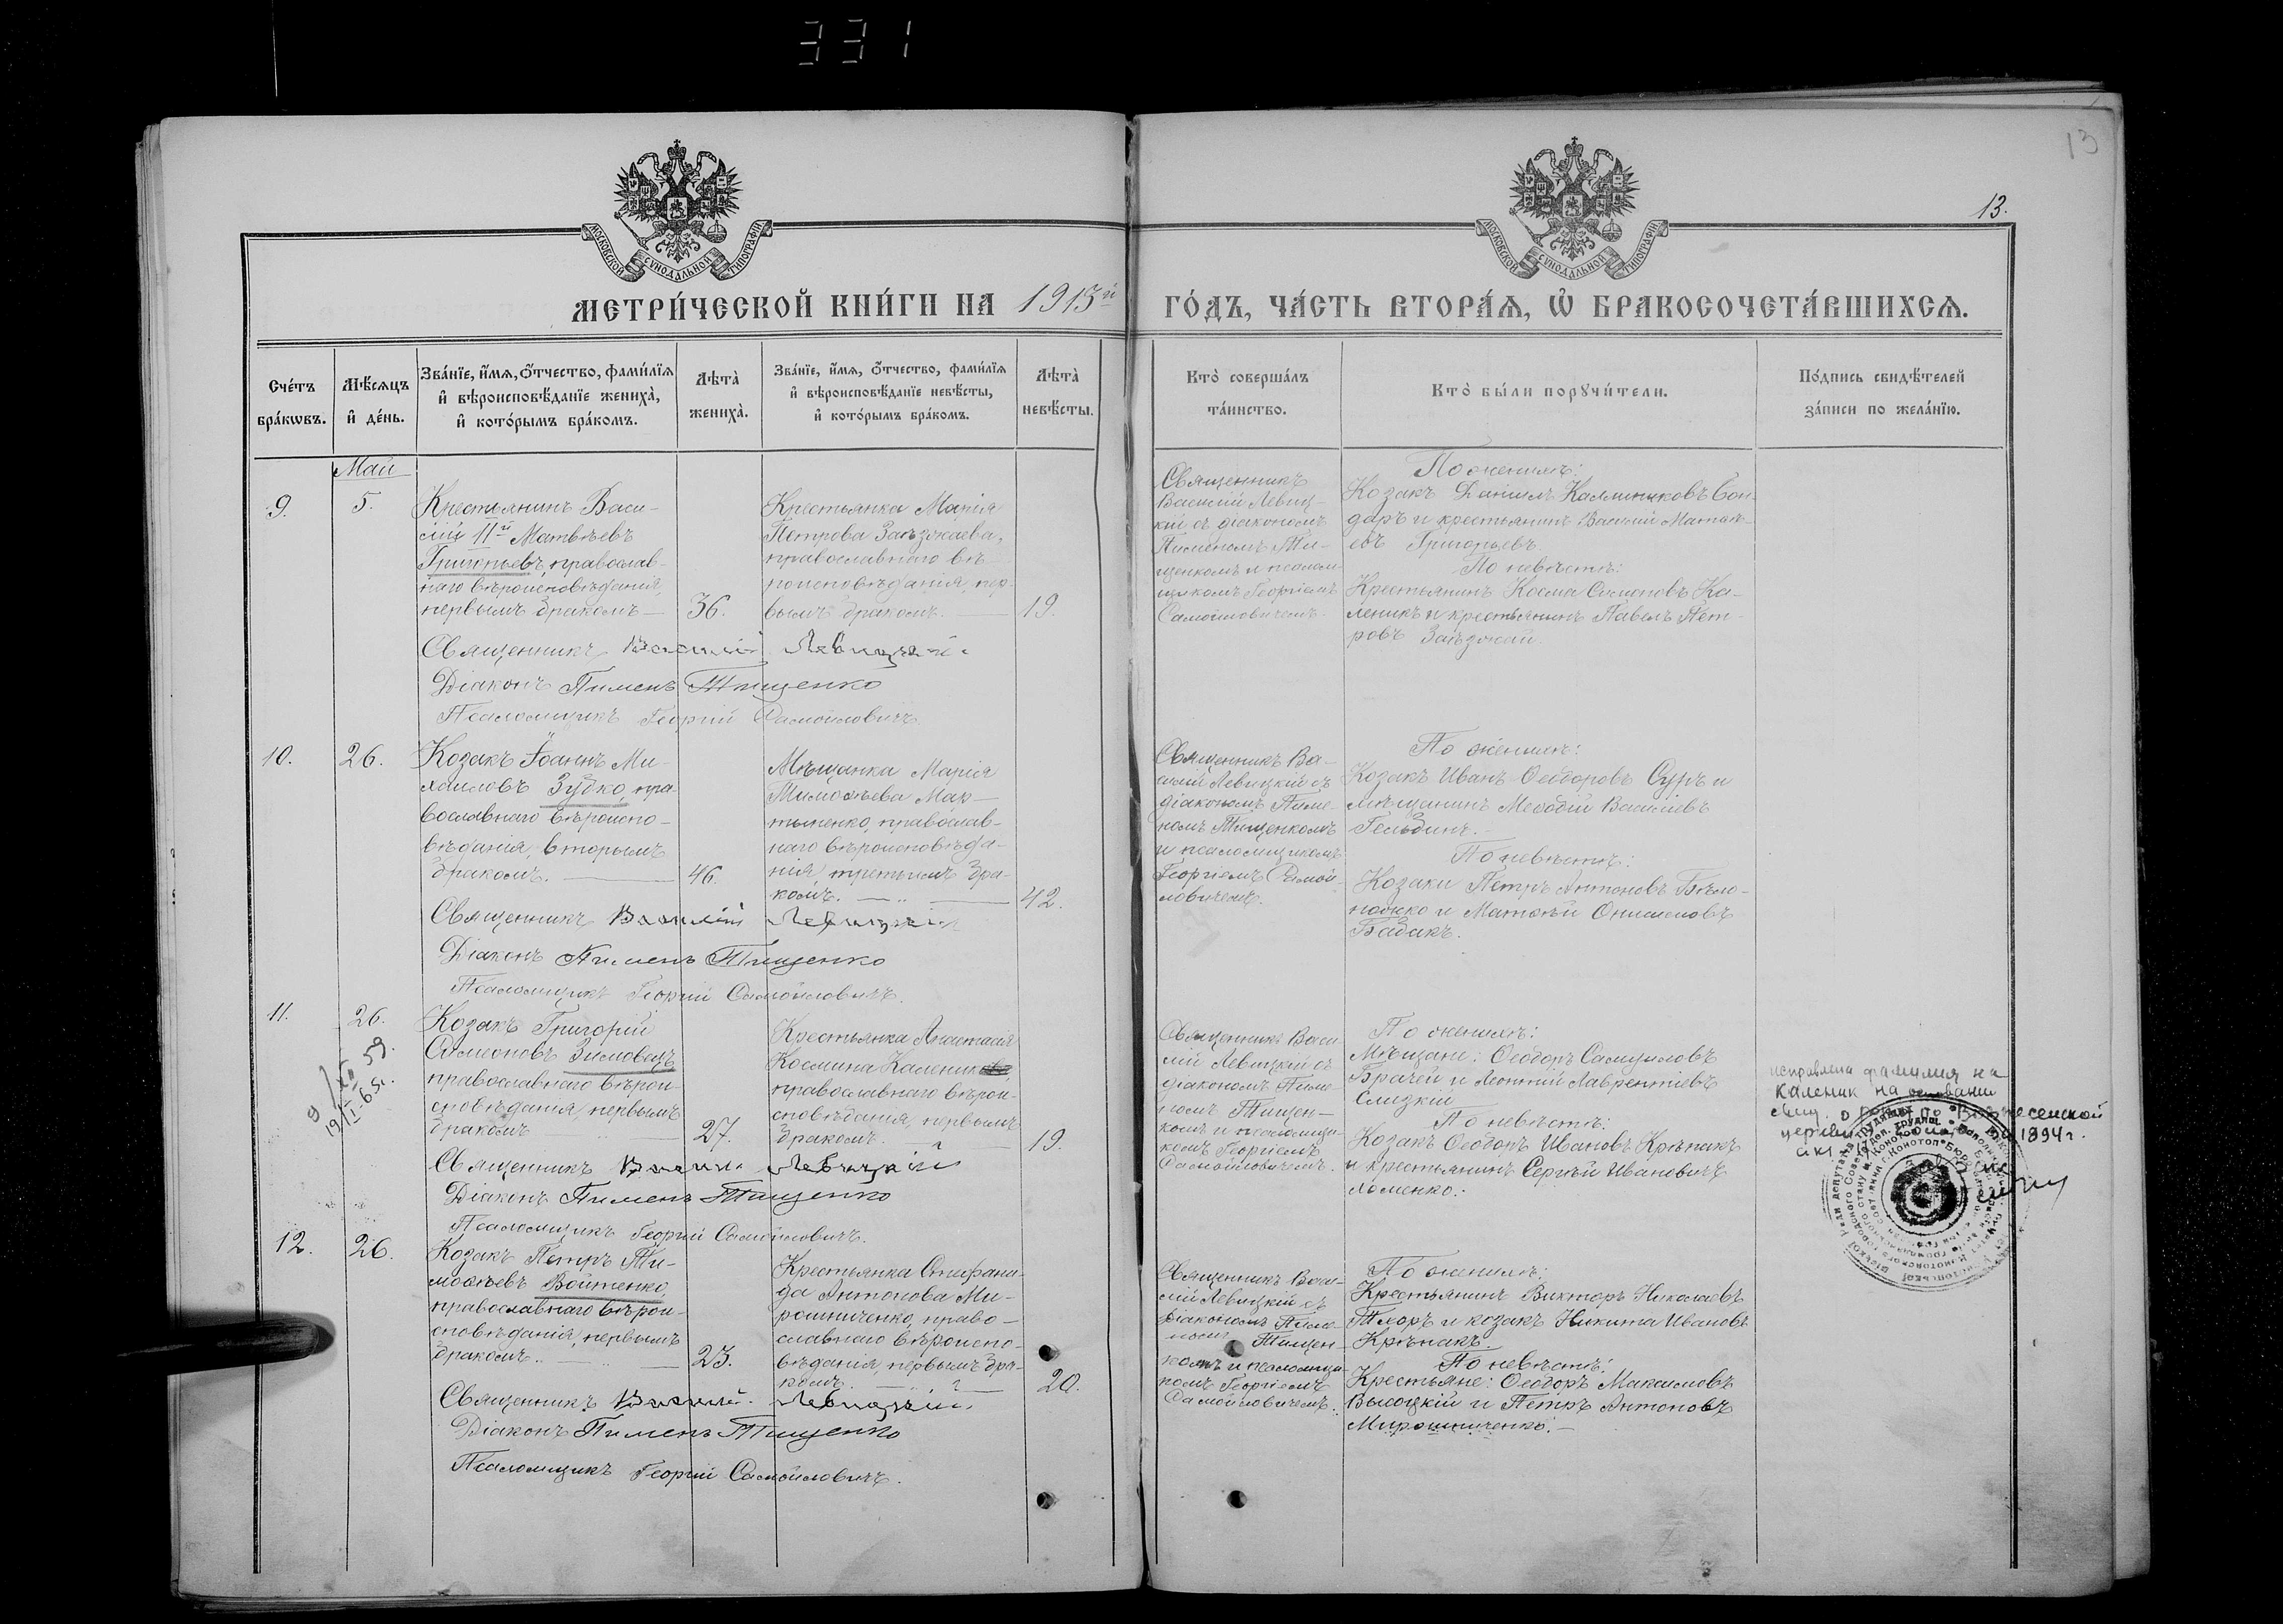 331
13
13.
МОСКОВСКОЙ СУНОДАЛЬНОЙ ТИПОГРАФІИ
МОСКОВСКОЙ СУНОДАЛЬНОЙ ТИПОГРАФІИ
МЕТРИ́ЧЕСКОЙ КНИ́ГИ НА 1913й ГО́ДЪ, ЧА́СТЬ ВТОРА́Ѧ, Ѡ БРАКОСОЧЕТА́ВШИХСѦ.
Сче́тъ бра́кѡвъ.
Мѣ́сѧцъ и де́нь.
Зва́нїе, и́мѧ, о́тчество, фами́лїѧ
и вѣроисповѣ́данїе жениха̀,
и кото́рымъ бра́комъ.
Лѣта̀
жениха̀.
Зва́нїе, и́мѧ, о́тчество, фами́лїѧ
и вѣроисповѣ́данїе невѣ́сты,
и кото́рымъ бра́комъ.
Лѣта̀
невѣ́сты.
Кто̀ соверша́лъ
та́инство.
Кто̀ бы́ли порꙋчи́тели.
По́дпись свидѣ́телей
за́писи по жела́нїю.
Май
9.
5.
Крестьянинъ Васи-
лій 11й Матвѣевъ
Григорьевъ, православ-
наго вѣроисповѣданія,
первымъ бракомъ —
36.
Крестьянка Марія
Петрова Заѣзжаева,
православнаго вѣ-
роисповѣданія, пер-
вымъ бракомъ. —
19.
Священникъ
Василій Левиц-
кій съ діакономъ
Пименомъ Ти-
щенкомъ и псалом-
щикомъ Георгіемъ
Самойловичемъ.
По женихѣ:
Козакъ Даніилъ Каллиниковъ Бон-
даръ и крестьянинъ Василій Матвѣ-
евъ Григорьевъ.
По невѣстѣ:
Крестьянинъ Косма Симоновъ Ка-
леникъ и крестьянинъ Павелъ Пет-
ровъ Заѣзжай.
Священникъ Василій Левицкій.
Діаконъ Пименъ Тищенко
Псаломщикъ Георгій Самойловичъ.
10.
26.
Козакъ Іоаннъ Ми-
хаиловъ Зубко, пра-
вославнаго вѣроиспо-
вѣданія, вторымъ
бракомъ. —
46.
Мѣщанка Марія
Тимоѳѣева Мар-
тыненко, православ-
наго вѣроисповѣда-
нія, третьимъ бра-
комъ. —
42.
Священникъ Ва-
силій Левицкій съ
діакономъ Пиме-
номъ Тищенкомъ
и псаломщикомъ
Георгіемъ Самой-
ловичемъ.
По женихѣ:
Козакъ Иванъ Ѳеодоровъ Суръ и
мѣщанинъ Меѳодій Василіевъ
По невѣстѣ:
Козаки Петръ Антоновъ Бѣло-
и Матѳѣй Онисимовъ
Бабакъ.
Священникъ Василій Левицкій
Діаконъ Пименъ Тищенко
Псаломщикъ Георгій Самойловичъ.
11.
26.
9/XII 59.
19/I-65г.
Козакъ Григорій
Симеоновъ Зимовецъ
православнаго вѣрои-
сповѣданія, первымъ
бракомъ —
27.
Крестьянка Анастасія
Космина Каленик
православнаго вѣрои-
сповѣданія, первымъ
бракомъ. —
19.
Священникъ Васи-
лій Левицкій съ
діакономъ Пиме-
номъ Тищен-
комъ и псаломщи-
комъ Георгіемъ
Самойловичемъ.
По женихѣ:
Мѣщане: Ѳеодоръ Самуиловъ
Брачей и Леонтій Лаврентіевъ
Слицкій
По невѣстѣ:
Козакъ Ѳеодоръ Ивановъ Крѣпакъ
и крестьянинъ Сергѣй Ивановичъ
Ломенко.
исправлена фамилия на
Каленик на основании
свид. о рожд. по Вознесенской
церкви 1894г.
Священникъ Василій Левицкій
Діаконъ Пименъ Тищенко
Псаломщикъ Георгій Самойловичъ.
12.
26.
Козакъ Петръ Ти-
моѳѣевъ Войтенко,
православнаго вѣрои-
сповѣданія, первымъ
бракомъ. —
23.
Крестьянка Стефани-
да Антонова Ми-
рошниченко, право-
славнаго вѣроиспо-
вѣданія, первымъ бра-
комъ. —
20.
Священникъ Васи-
лій Левицкій съ
діакономъ Пиме-
номъ Тищен-
комъ и псаломщи-
комъ Георгіемъ
Самойловичемъ.
По женихѣ:
Крестьянинъ Викторъ Николаевъ
Тхоръ и козакъ Никита Ивановъ
Крѣпакъ.
По невѣстѣ:
Крестьяне: Ѳеодоръ Максимовъ
Высоцкій и Петръ Антоновъ
Мирошниченко. —
Священникъ Василій Левицкій
Діаконъ Пименъ Тищенко
Псаломщикъ Георгій Самойловичъ.